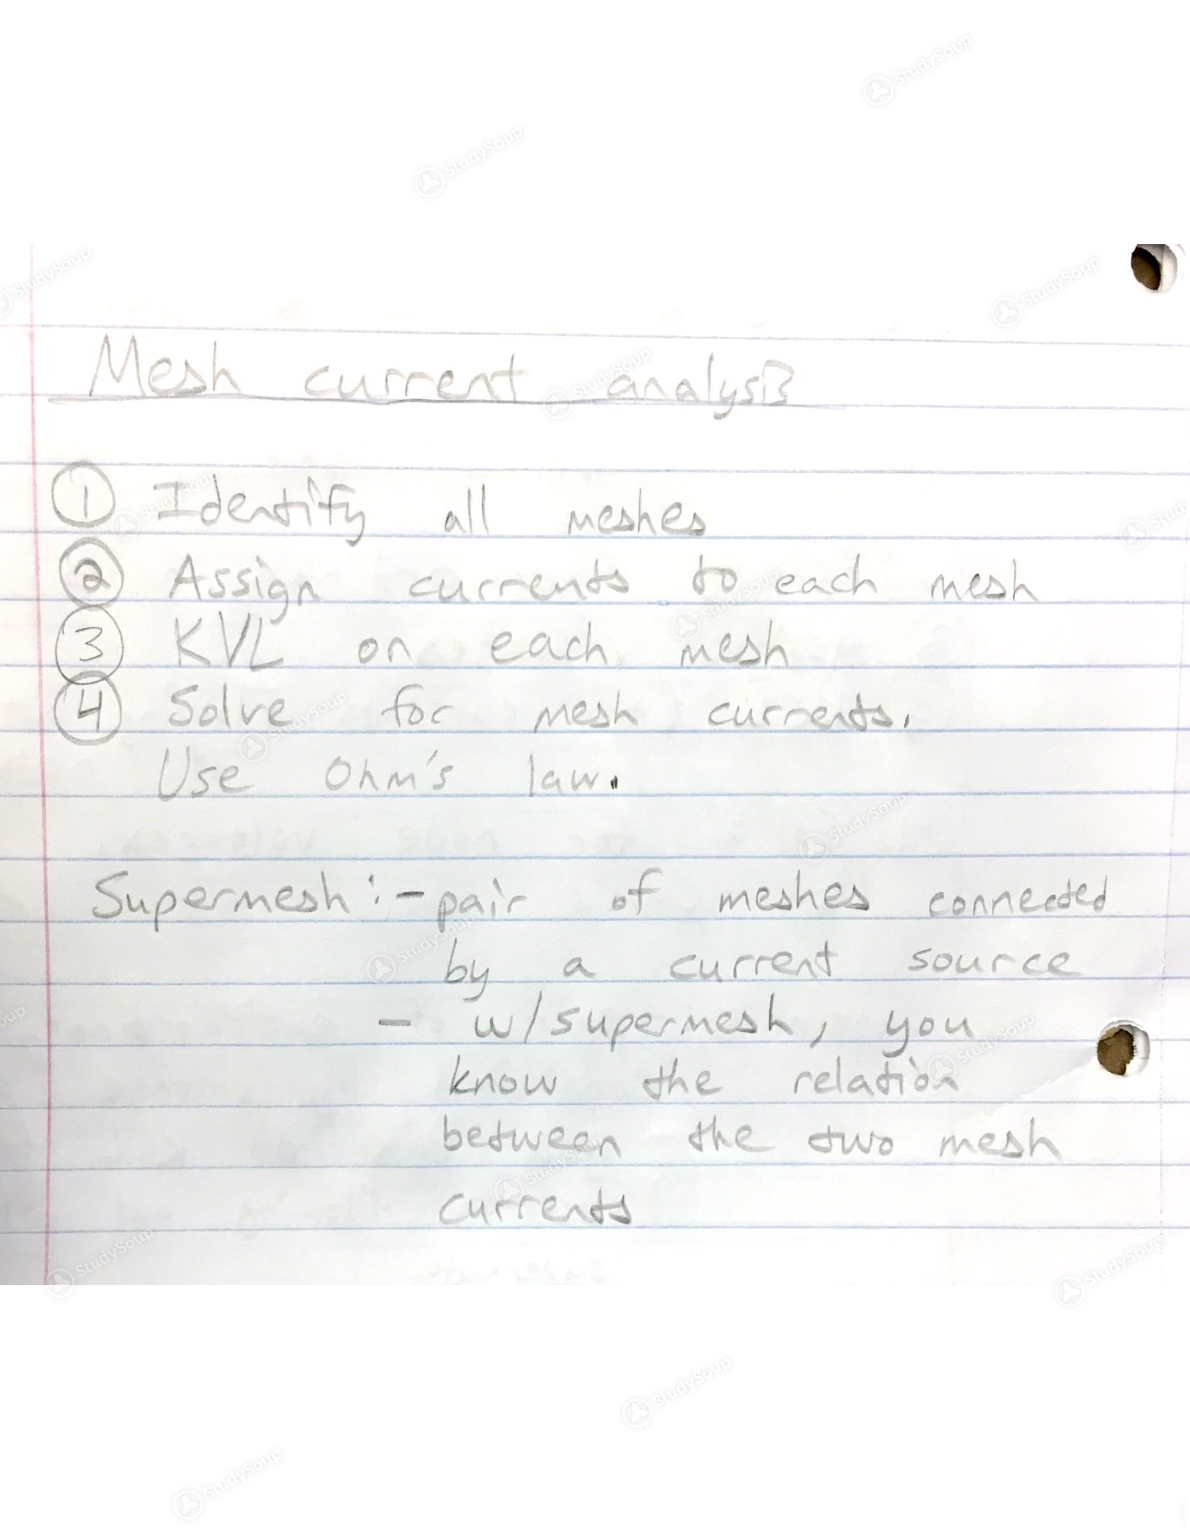 StudySoup
StudySoup
StudySoup
StudySoup
Mesh current analysis
StudySoup
① Identify all meshes
② Assign currents to each mesh
③ KVL on each mesh
④ Solve for mesh currents.
Use Ohm's law.
StudySoup
Supermesh: - pair of meshes connected
by a current source
- w/ supermesh, you
know the relation
between the two mesh
currents
StudySoup
StudySoup
StudySoup
StudySoup